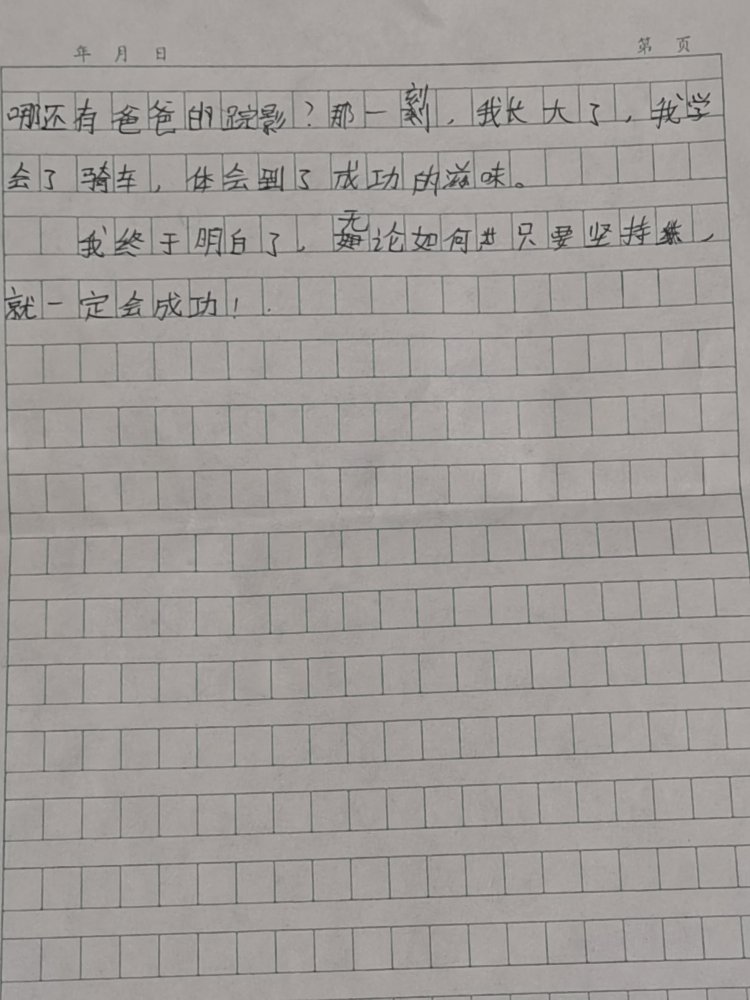 年 月 日 第 页
哪还有爸爸的踪影?那一刻,我长大了,我学
会了骑车,体会到了成功的滋味。
我终于明白了,无论如何只要坚持,
就一定会成功!